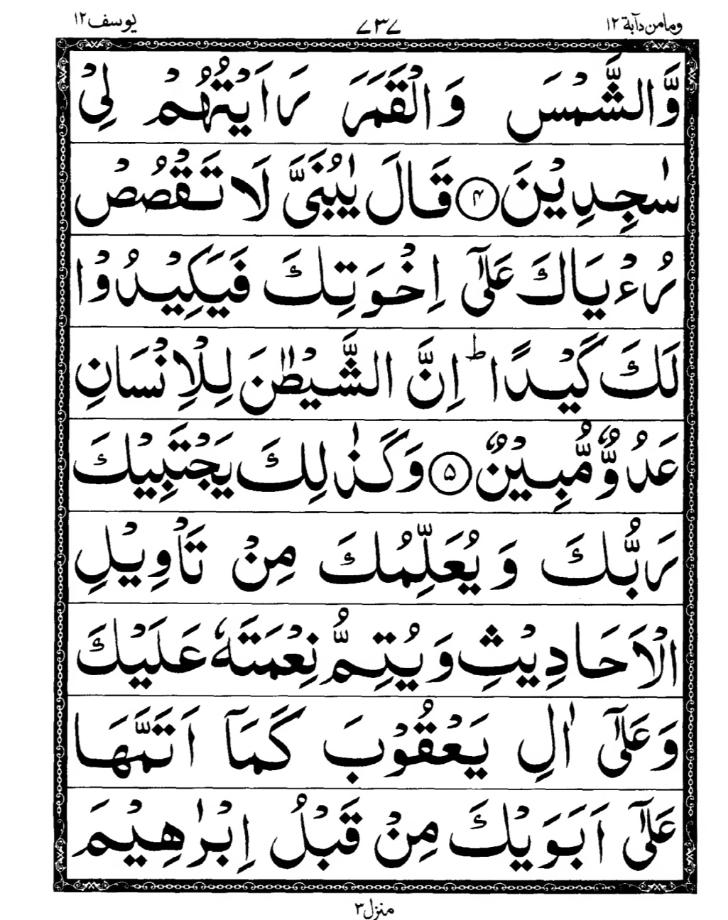 ومامن دآبة ١٢ ٧٣٧ يوسف ١٢
وَّالشَّمْسَ وَالْقَمَرَ رَاَيْتُهُمْ لِيْ
سٰجِدِيْنَ ۝۴ قَالَ يٰبُنَيَّ لَا تَقْصُصْ
رُءْيَاكَ عَلٰۤى اِخْوَتِكَ فَيَكِيْدُوْا
لَكَ كَيْدًا ؕ اِنَّ الشَّيْطٰنَ لِلْاِنْسَانِ
عَدُوٌّ مُّبِيْنٌ ۝۵ وَكَذٰلِكَ يَجْتَبِيْكَ
رَبُّكَ وَيُعَلِّمُكَ مِنْ تَاْوِيْلِ
الْاَحَادِيْثِ وَيُتِمُّ نِعْمَتَهٗ عَلَيْكَ
وَعَلٰۤى اٰلِ يَعْقُوْبَ كَمَاۤ اَتَمَّهَا
عَلٰۤى اَبَوَيْكَ مِنْ قَبْلُ اِبْرٰهِيْمَ
منزل ٣